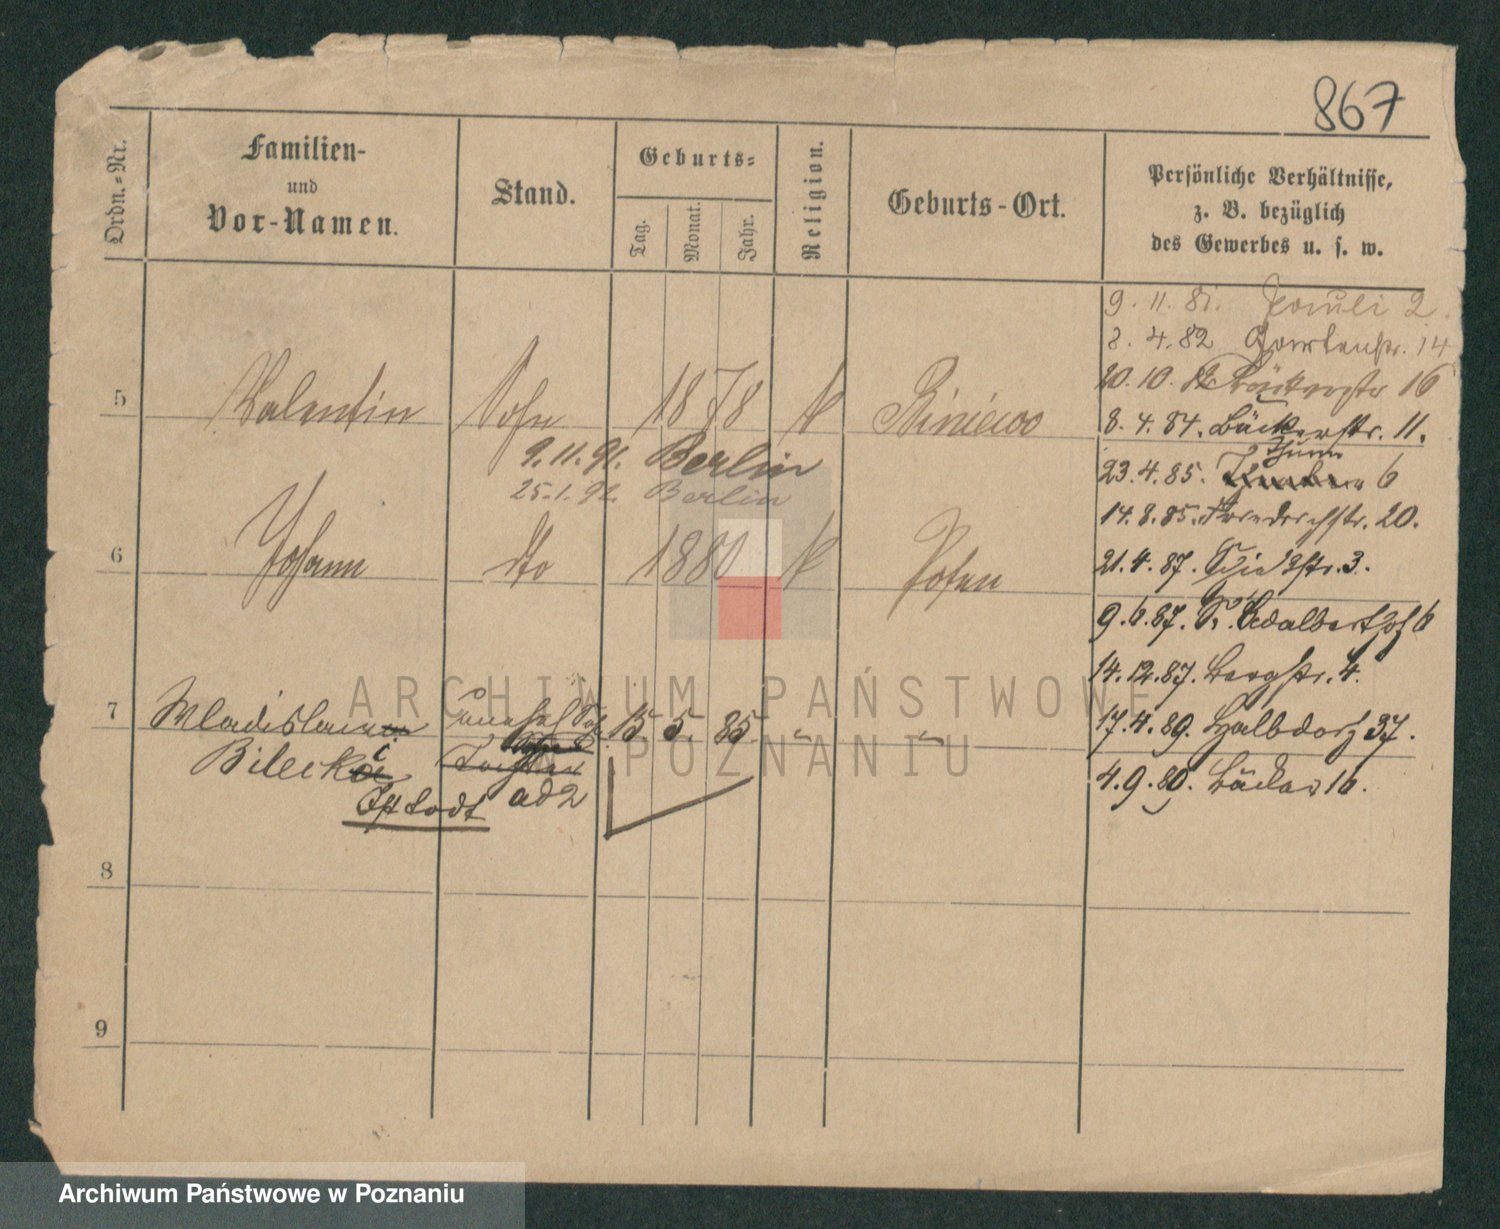 867
Ordn.-Nr.
Familien-
und
Vor-Namen.
Stand.
Geburts-
Tag.
Monat.
Jahr.
Religion.
Geburts-Ort.
Persönliche Verhältnisse,
z. B. bezüglich
des Gewerbes u. s. w.
9. 11. 81. Pauli 2.
8. 4. 82 Gartenstr. 14
20. 10. 82 Bäckerstr 16
8. 4. 84. Bäckerstr. 11.
23. 4. 85. 6
14. 8. 85. Friedrichstr. 20.
21. 4. 87. 3.
9. 6. 87. St. Adalbert 6
14. 12. 87. Bergstr. 4.
17. 4. 89. Halbdorf 37.
4. 9. 80. Bäcker 16.
5 Valentin Sohn 1878 k
9. 11. 91. Berlin
25. 1. 92. Berlin
6 Johann dto 1880 k Posen
7 Wladislaus Sohn 15. 5. 85. " "
Bilecki
ist todt ad 2
8
9
ARCHIWUM PAŃSTWOWE
W POZNANIU
Archiwum Państwowe w Poznaniu